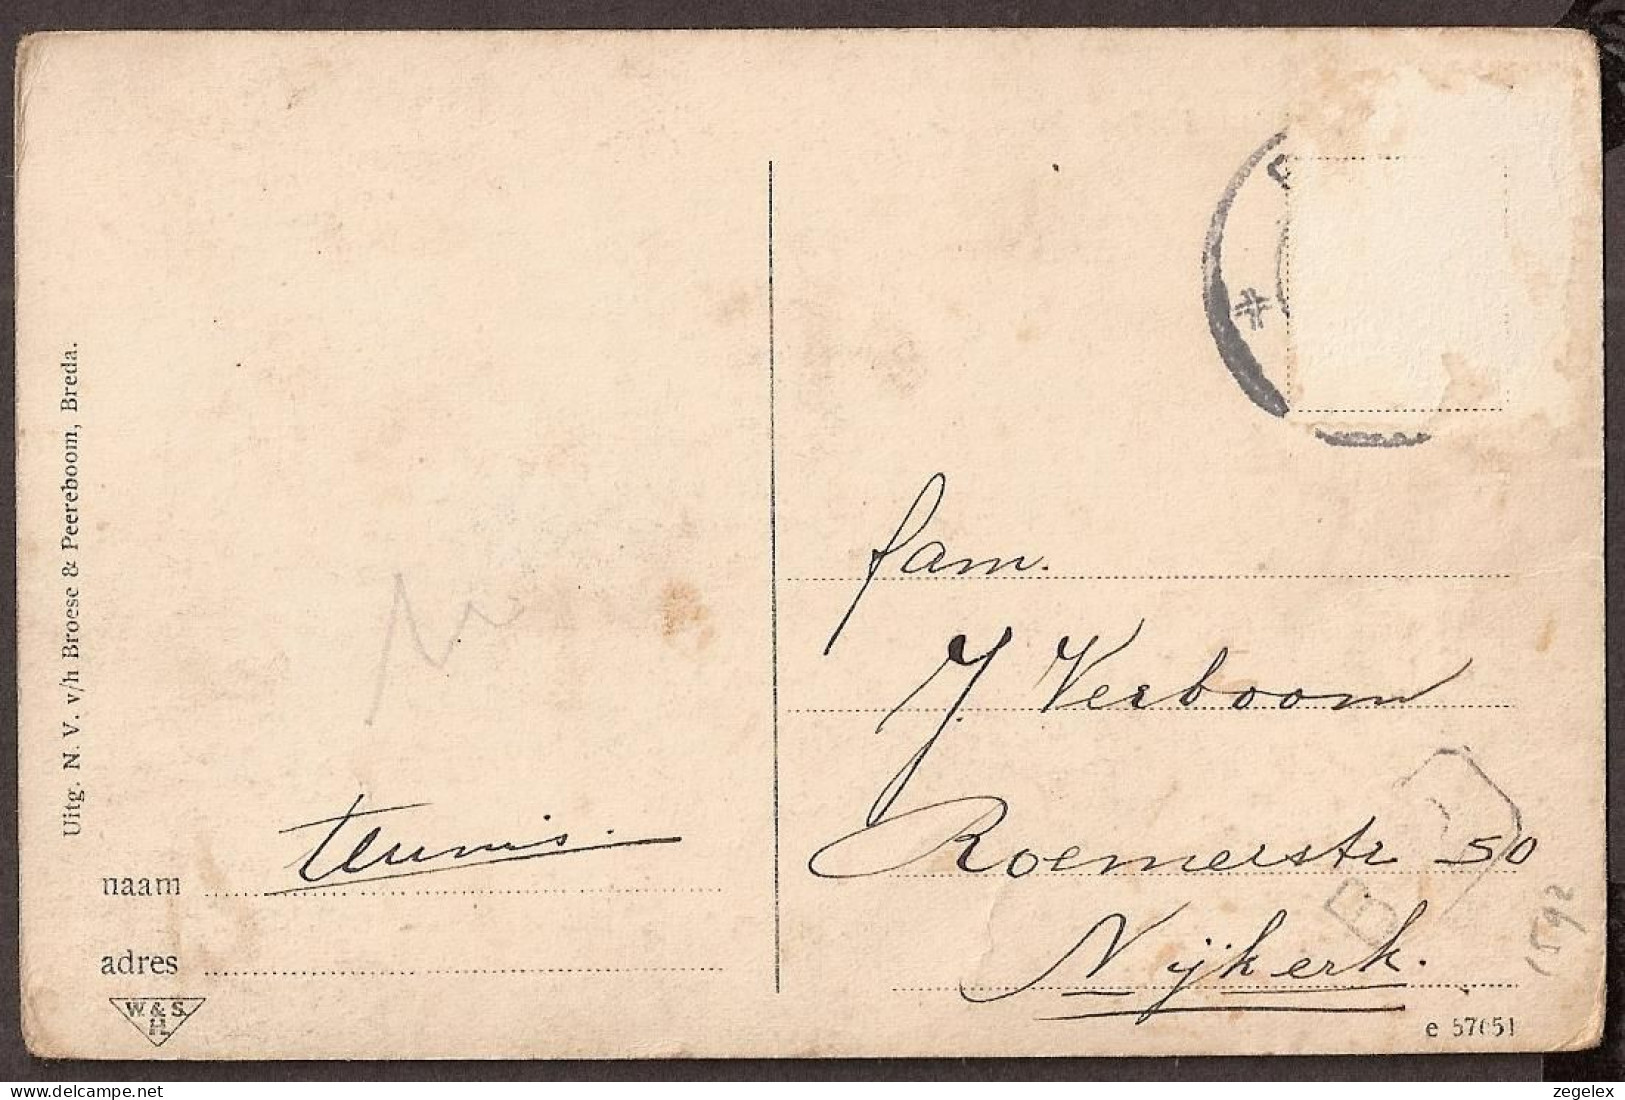 Uitg. N. V. v/h Broese & Peereboom, Breda.
fam.
J. Verboom
Roemerstr 50
Nijkerk.
teunis.
naam
adres
W. & S.
H.
B
1592
e 57651
zegelex